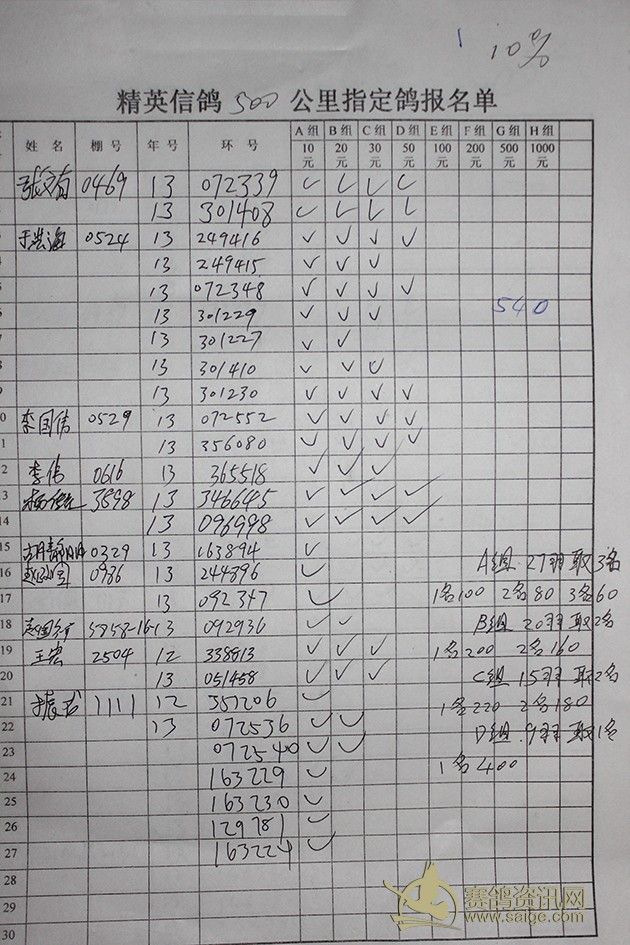 10%
精英信鸽 500 公里指定鸽报名单
姓 名 棚 号 年 号 环 号 A组 10元 B组 20元 C组 30元 D组 50元 E组 100元 F组 200元 G组 500元 H组 1000元
张文有 0469 13 072339 ✓ ✓ ✓ ✓
13 301408 ✓ ✓ ✓ ✓
于洪海 0524 13 249416 ✓ ✓ ✓ ✓
13 249415 ✓ ✓ ✓
13 072348 ✓ ✓ ✓ ✓
13 301229 ✓ ✓ ✓ 540
13 301227 ✓ ✓
13 301410 ✓ ✓ ✓
13 301230 ✓ ✓ ✓ ✓
李国信 0529 13 072552 ✓ ✓ ✓ ✓
13 356080 ✓ ✓ ✓ ✓
2 李伟 0616 13 365518 ✓ ✓ ✓
3 3898 13 346645 ✓ ✓ ✓ ✓
14 13 096998 ✓ ✓ ✓ ✓
15 0329 13 163894 ✓
A组 27羽 取3名
16 0986 13 244896 ✓
17 13 092347 ✓ 1名100 2名80 3名60
18 5858-16-13 092936 ✓ ✓ B组 20羽 取2名
19 王宏 2504 12 338813 ✓ ✓ ✓ 1名200 2名160
20 13 051458 ✓ ✓ ✓ C组 15羽 取2名
21 1111 12 357206 ✓ 1名220 2名180
22 13 072536 ✓ ✓ D组 9羽 取1名
23 072540 ✓ ✓
1名400
24 163229 ✓
25 163230 ✓
26 129781 ✓
27 163224 ✓
28
29
30
赛鸽资讯网
www.saige.com